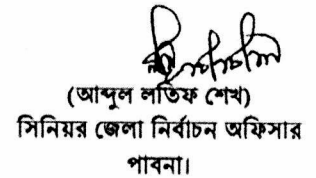 (আব্দুল লতিফ শেখ)
সিনিয়র জেলা নির্বাচন অফিসার
পাবনা।